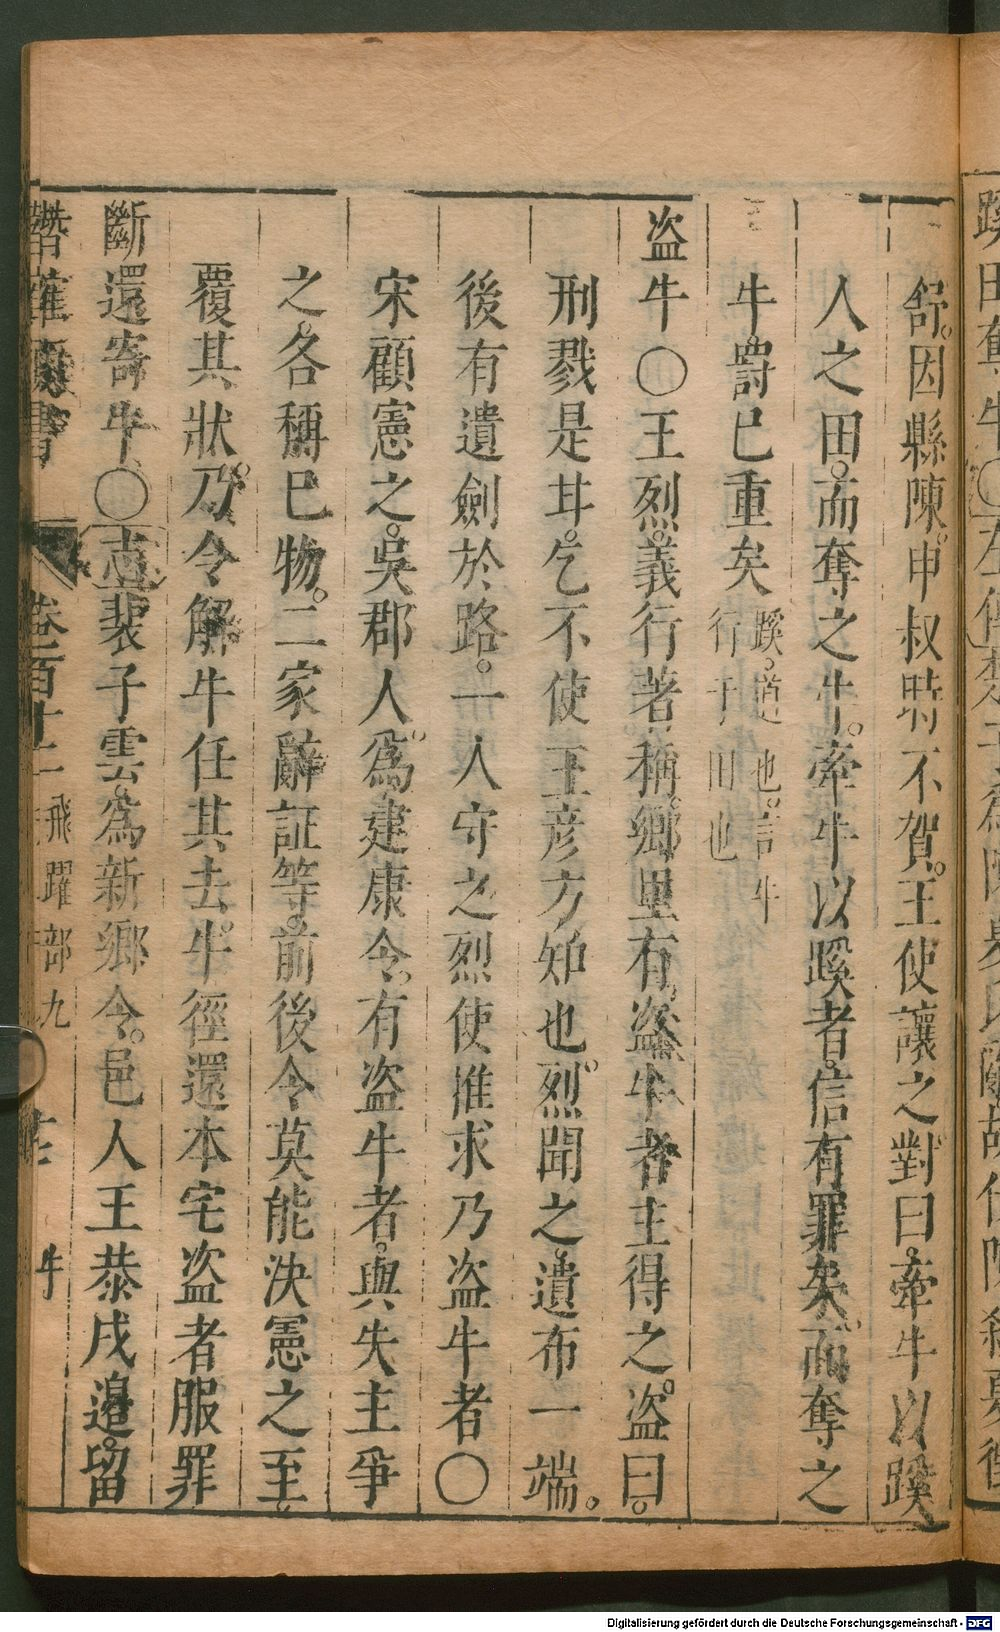 舒因縣陳申叔時不賀王使讓之對曰牽牛以蹊
人之田而奪之牛牽牛以蹊者信有罪矣而奪之
牛罰已重矣蹊道也言牛
行于田也
盗牛〇王烈義行著稱鄉里有盗牛者主得之盗曰
刑戮是甘乞不使王彦方知也烈聞之遺布一端
後有遺劍於路一人守之烈使推求乃盗牛者〇
宋顧憲之吳郡人爲建康令有盗牛者與失主爭
之各稱已物二家辭証等前後令莫能決憲之至
覆其狀乃令解牛任其去牛徑還本宅盗者服罪
斷還寄牛〇志裴子雲爲新鄉令邑人王恭戍邉留
卷一百十二 飛躍部九 牛
蹊田奪牛〇左傳楚子爲陳夏氏亂故伐陳
Digitalisierung gefördert durch die Deutsche Forschungsgemeinschaft - DFG